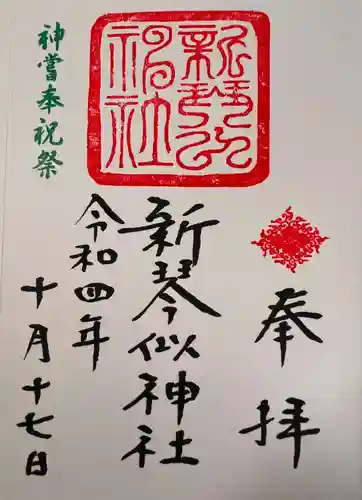 奉拝
新琴似神社
令和四年
十月十七日
神嘗奉祝祭